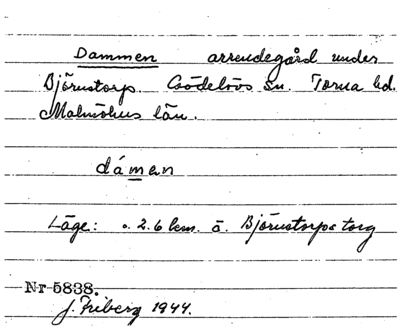 Dammen arrendegård under
Björnstorp. Gödelövs Sn. Torna hd.
Malmöhus län.
dámen
Läge: c. 2.6 km. ö. Björnstorps torg
Nr 5838.
J. Friberg 1944.